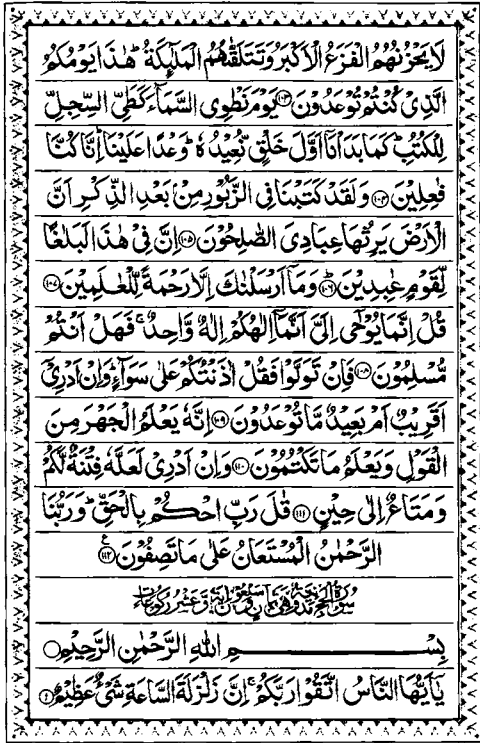 لَا يَحْزُنُهُمُ الْفَزَعُ الْاَكْبَرُ وَتَتَلَقّٰىهُمُ الْمَلٰٓئِكَةُ ؕ هٰذَا يَوْمُكُمُ
الَّذِيْ كُنْتُمْ تُوْعَدُوْنَ ۝۱۰۳ يَوْمَ نَطْوِي السَّمَآءَ كَطَيِّ السِّجِلِّ
لِلْكُتُبِ ؕ كَمَا بَدَاْنَاۤ اَوَّلَ خَلْقٍ نُّعِيْدُهٗ ؕ وَعْدًا عَلَيْنَا ؕ اِنَّا كُنَّا
فٰعِلِيْنَ ۝۱۰۴ وَلَقَدْ كَتَبْنَا فِي الزَّبُوْرِ مِنْۢ بَعْدِ الذِّكْرِ اَنَّ
الْاَرْضَ يَرِثُهَا عِبَادِيَ الصّٰلِحُوْنَ ۝۱۰۵ اِنَّ فِيْ هٰذَا لَبَلٰغًا
لِّقَوْمٍ عٰبِدِيْنَ ؕ ۝۱۰۶ وَمَاۤ اَرْسَلْنٰكَ اِلَّا رَحْمَةً لِّلْعٰلَمِيْنَ ۝۱۰۷
قُلْ اِنَّمَا يُوْحٰۤى اِلَيَّ اَنَّمَاۤ اِلٰهُكُمْ اِلٰهٌ وَّاحِدٌ ۚ فَهَلْ اَنْتُمْ
مُّسْلِمُوْنَ ۝۱۰۸ فَاِنْ تَوَلَّوْا فَقُلْ اٰذَنْتُكُمْ عَلٰى سَوَآءٍ ؕ وَاِنْ اَدْرِيْۤ
اَقَرِيْبٌ اَمْ بَعِيْدٌ مَّا تُوْعَدُوْنَ ۝۱۰۹ اِنَّهٗ يَعْلَمُ الْجَهْرَ مِنَ
الْقَوْلِ وَيَعْلَمُ مَا تَكْتُمُوْنَ ۝۱۱۰ وَاِنْ اَدْرِيْ لَعَلَّهٗ فِتْنَةٌ لَّكُمْ
وَمَتَاعٌ اِلٰى حِيْنٍ ۝۱۱۱ قٰلَ رَبِّ احْكُمْ بِالْحَقِّ ؕ وَرَبُّنَا
الرَّحْمٰنُ الْمُسْتَعَانُ عَلٰى مَا تَصِفُوْنَ ۝۱۱۲ ع
سورة الحج
بِسْمِ اللّٰهِ الرَّحْمٰنِ الرَّحِيْمِ
يٰۤاَيُّهَا النَّاسُ اتَّقُوْا رَبَّكُمْ ۚ اِنَّ زَلْزَلَةَ السَّاعَةِ شَيْءٌ عَظِيْمٌ ۝۱